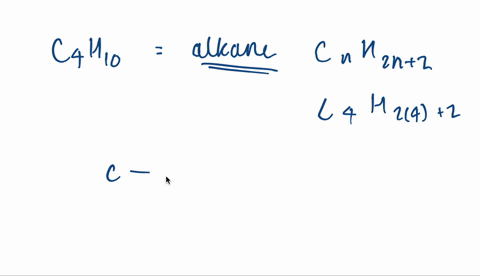 C₄H₁₀ = alkane CₙH₂ₙ₊₂
C₄H₂₍₄₎₊₂
C —